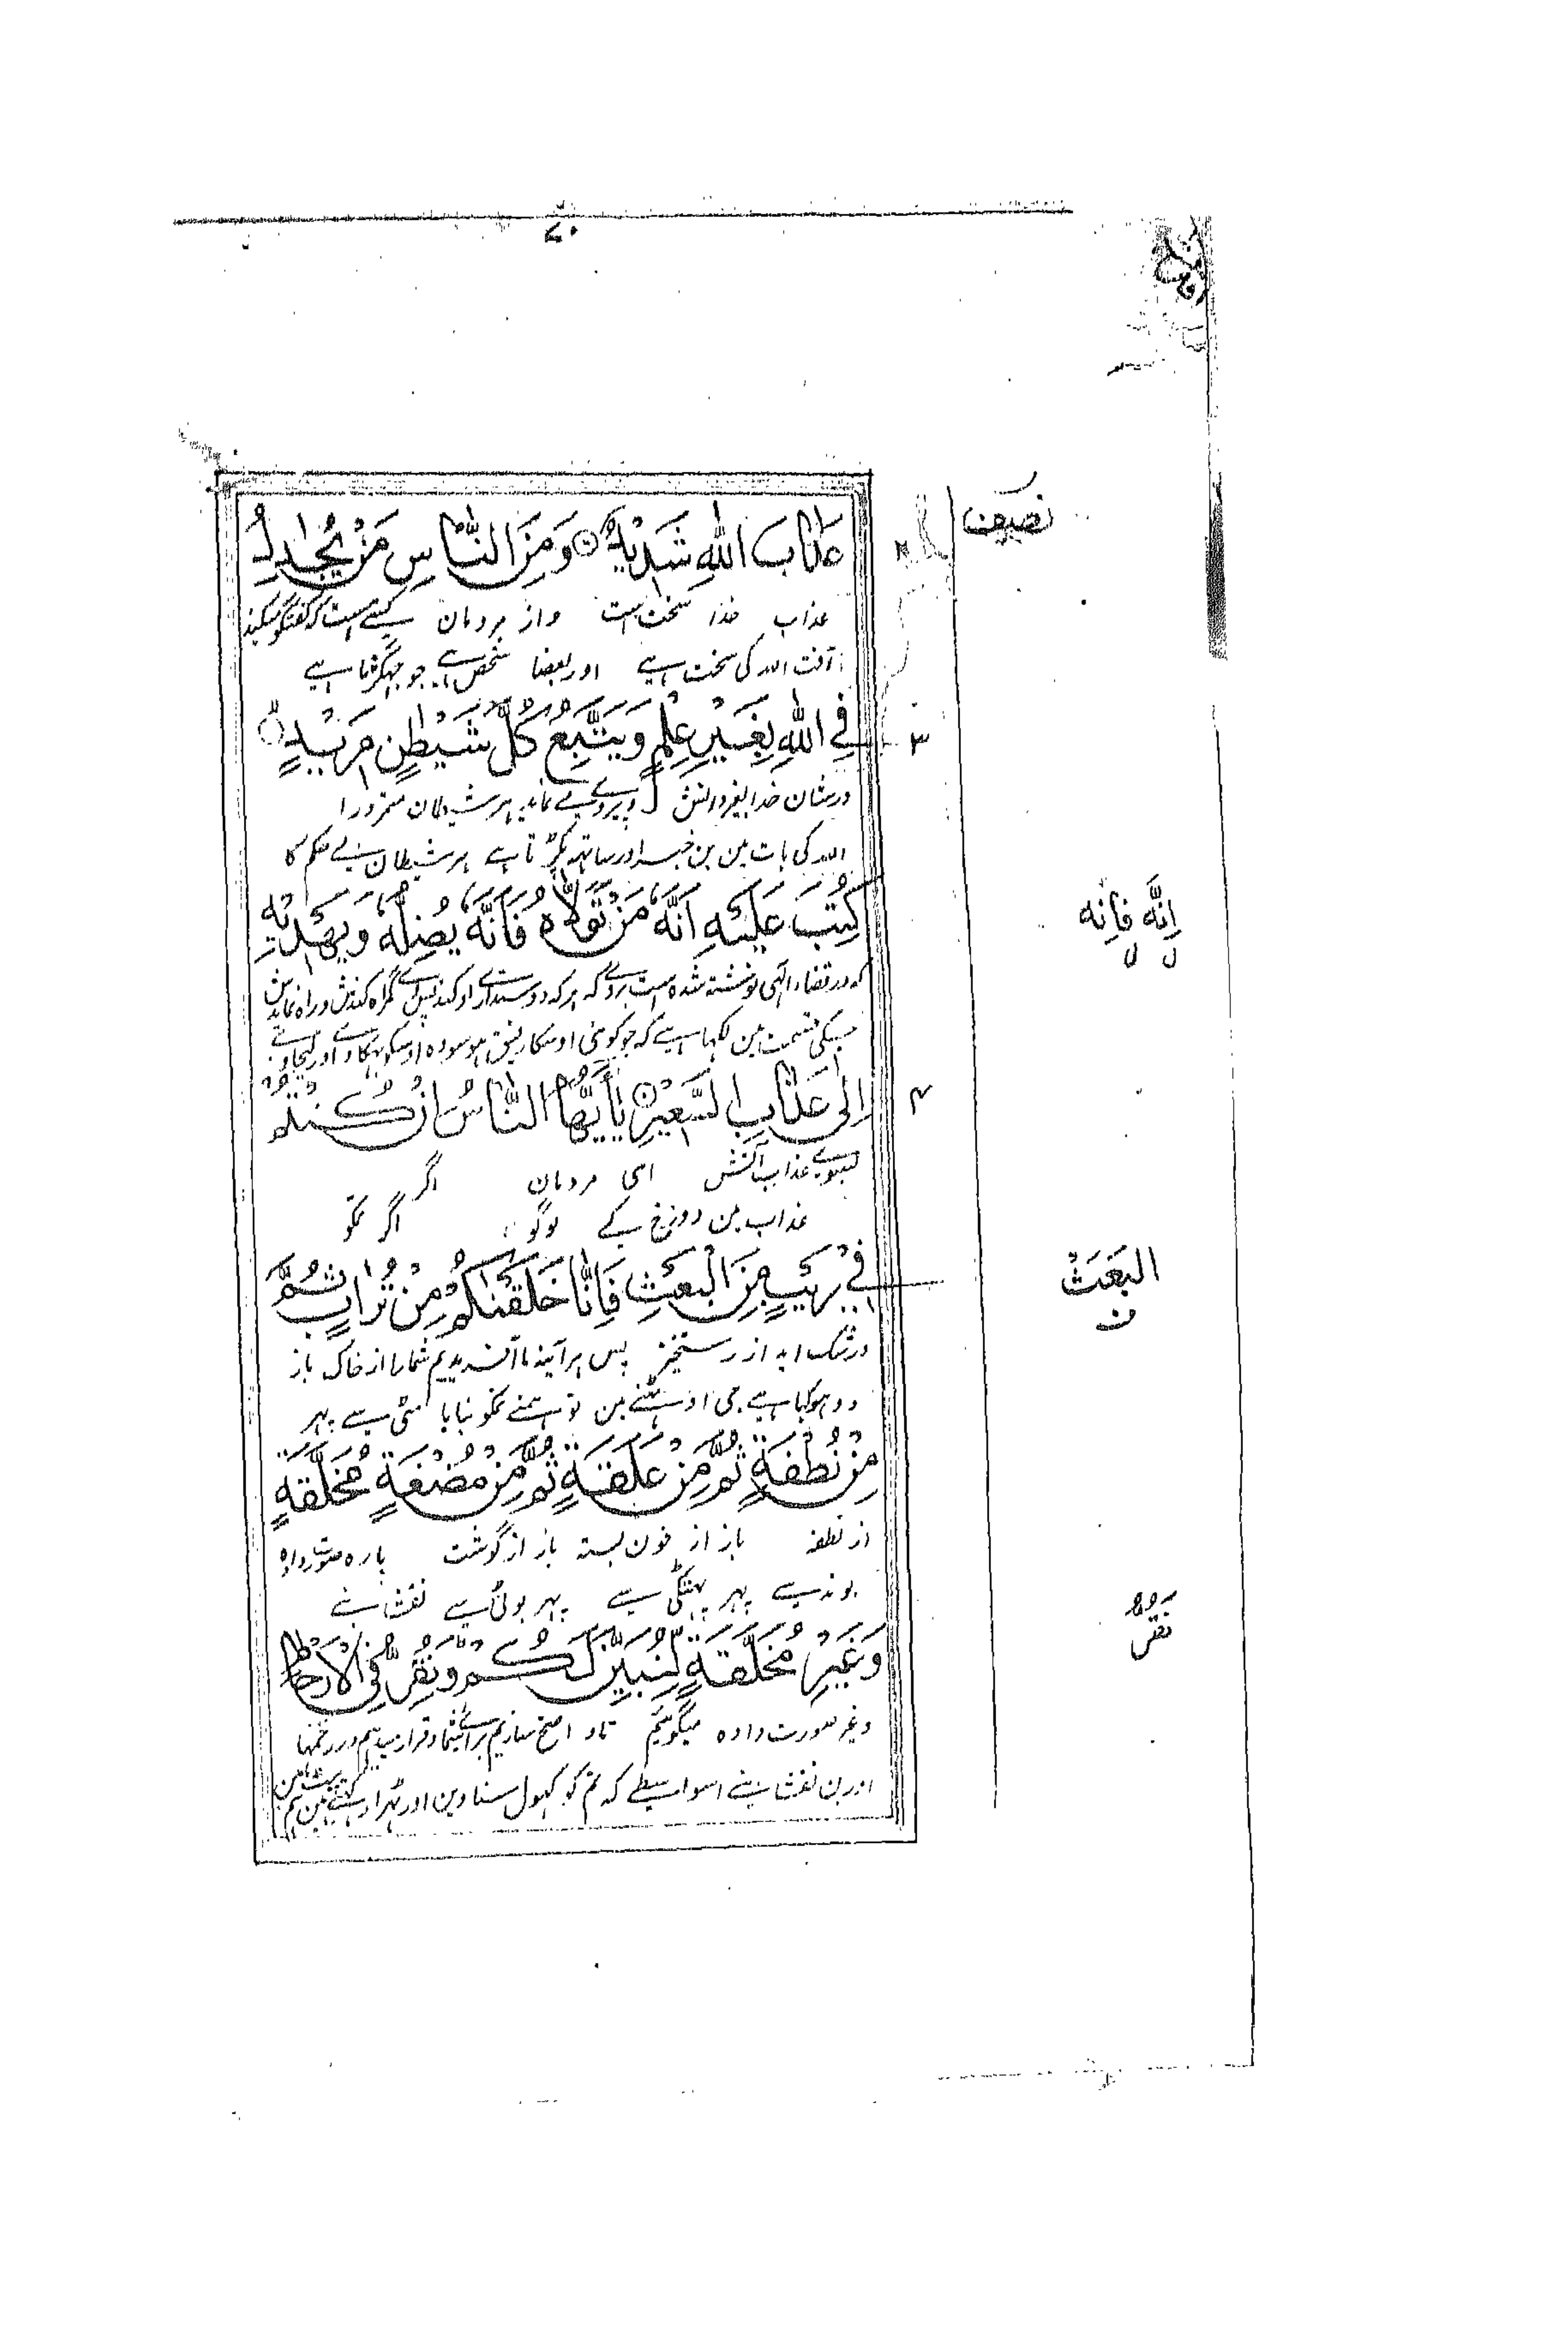 ۷۰
نصیف
عَذَابَ اللّٰهِ شَدِيْدٌ ۝ وَمِنَ النَّاسِ مَنْ يُّجَادِلُ
۲
عذاب خدا سخت است و از مردمان کسے است که گفتگو میکند
آفت اللہ کی سخت ہے اور بعضا شخص ہے جو جہگڑتا ہے
فِي اللّٰهِ بِغَيْرِ عِلْمٍ وَّيَتَّبِعُ كُلَّ شَيْطٰنٍ مَّرِيْدٍ ۝
۳
در شان خدا بغیر دانش و پیروے مے نماید ہر شیطان متمرد را
اللہ کی بات مین بن خبر اور ساتہہ پکڑتا ہے ہر شیطان بے حکم کا
كُتِبَ عَلَيْهِ اَنَّهٗ مَنْ تَوَلَّاهُ فَاَنَّهٗ يُضِلُّهٗ وَيَهْدِيْهِ
اِنَّه فَاِنه
ل ل
که در قضاء الٰہی نوشتہ شدہ است بروے که ہر که دوستدارد او کند پس وے گمراہ کندش و راہ نمایدش
جسکی قسمت مین لکہا ہے کہ جو کوئی اوسکا رفیق ہو سو وہ اوسکو بہکاوے اور لیجاوے
اِلٰى عَذَابِ السَّعِيْرِ ۝ يٰٓاَيُّهَا النَّاسُ اِنْ كُنْتُمْ
۴
بسوے عذاب آتش اے مردمان اگر
عذاب مین دوزخ کے لوگو اگر تمکو
فِيْ رَيْبٍ مِّنَ الْبَعْثِ فَاِنَّا خَلَقْنٰكُمْ مِّنْ تُرَابٍ ثُمَّ
البَعَثْ
ن
در شک اید از رستخیز پس ہر آینہ ما آفریدیم شمارا از خاک باز
دہوکہا ہے جی اوٹہنے مین تو ہمنے تمکو بنایا مٹی سے پہر
مِنْ نُّطْفَةٍ ثُمَّ مِنْ عَلَقَةٍ ثُمَّ مِنْ مُّضْغَةٍ مُّخَلَّقَةٍ
از نطفہ باز از خون بستہ باز از گوشت پارہ صورت دادہ
بوند سے پہر پہٹکی سے پہر بوٹی سے نقشا بنے
وَّغَيْرِ مُخَلَّقَةٍ لِّنُبَيِّنَ لَكُمْ وَنُقِرُّ فِي الْاَرْحَامِ
نُقِرُّ
و غیر صورت دادہ میگوئیم تا واضح سازیم براے شما و قرار میدہیم در رحمہا
اور بن نقشا بنے اسواسطے کہ تم کو کہول سنا وین اور ٹہرا رکہتے ہین ہم پیٹ مین